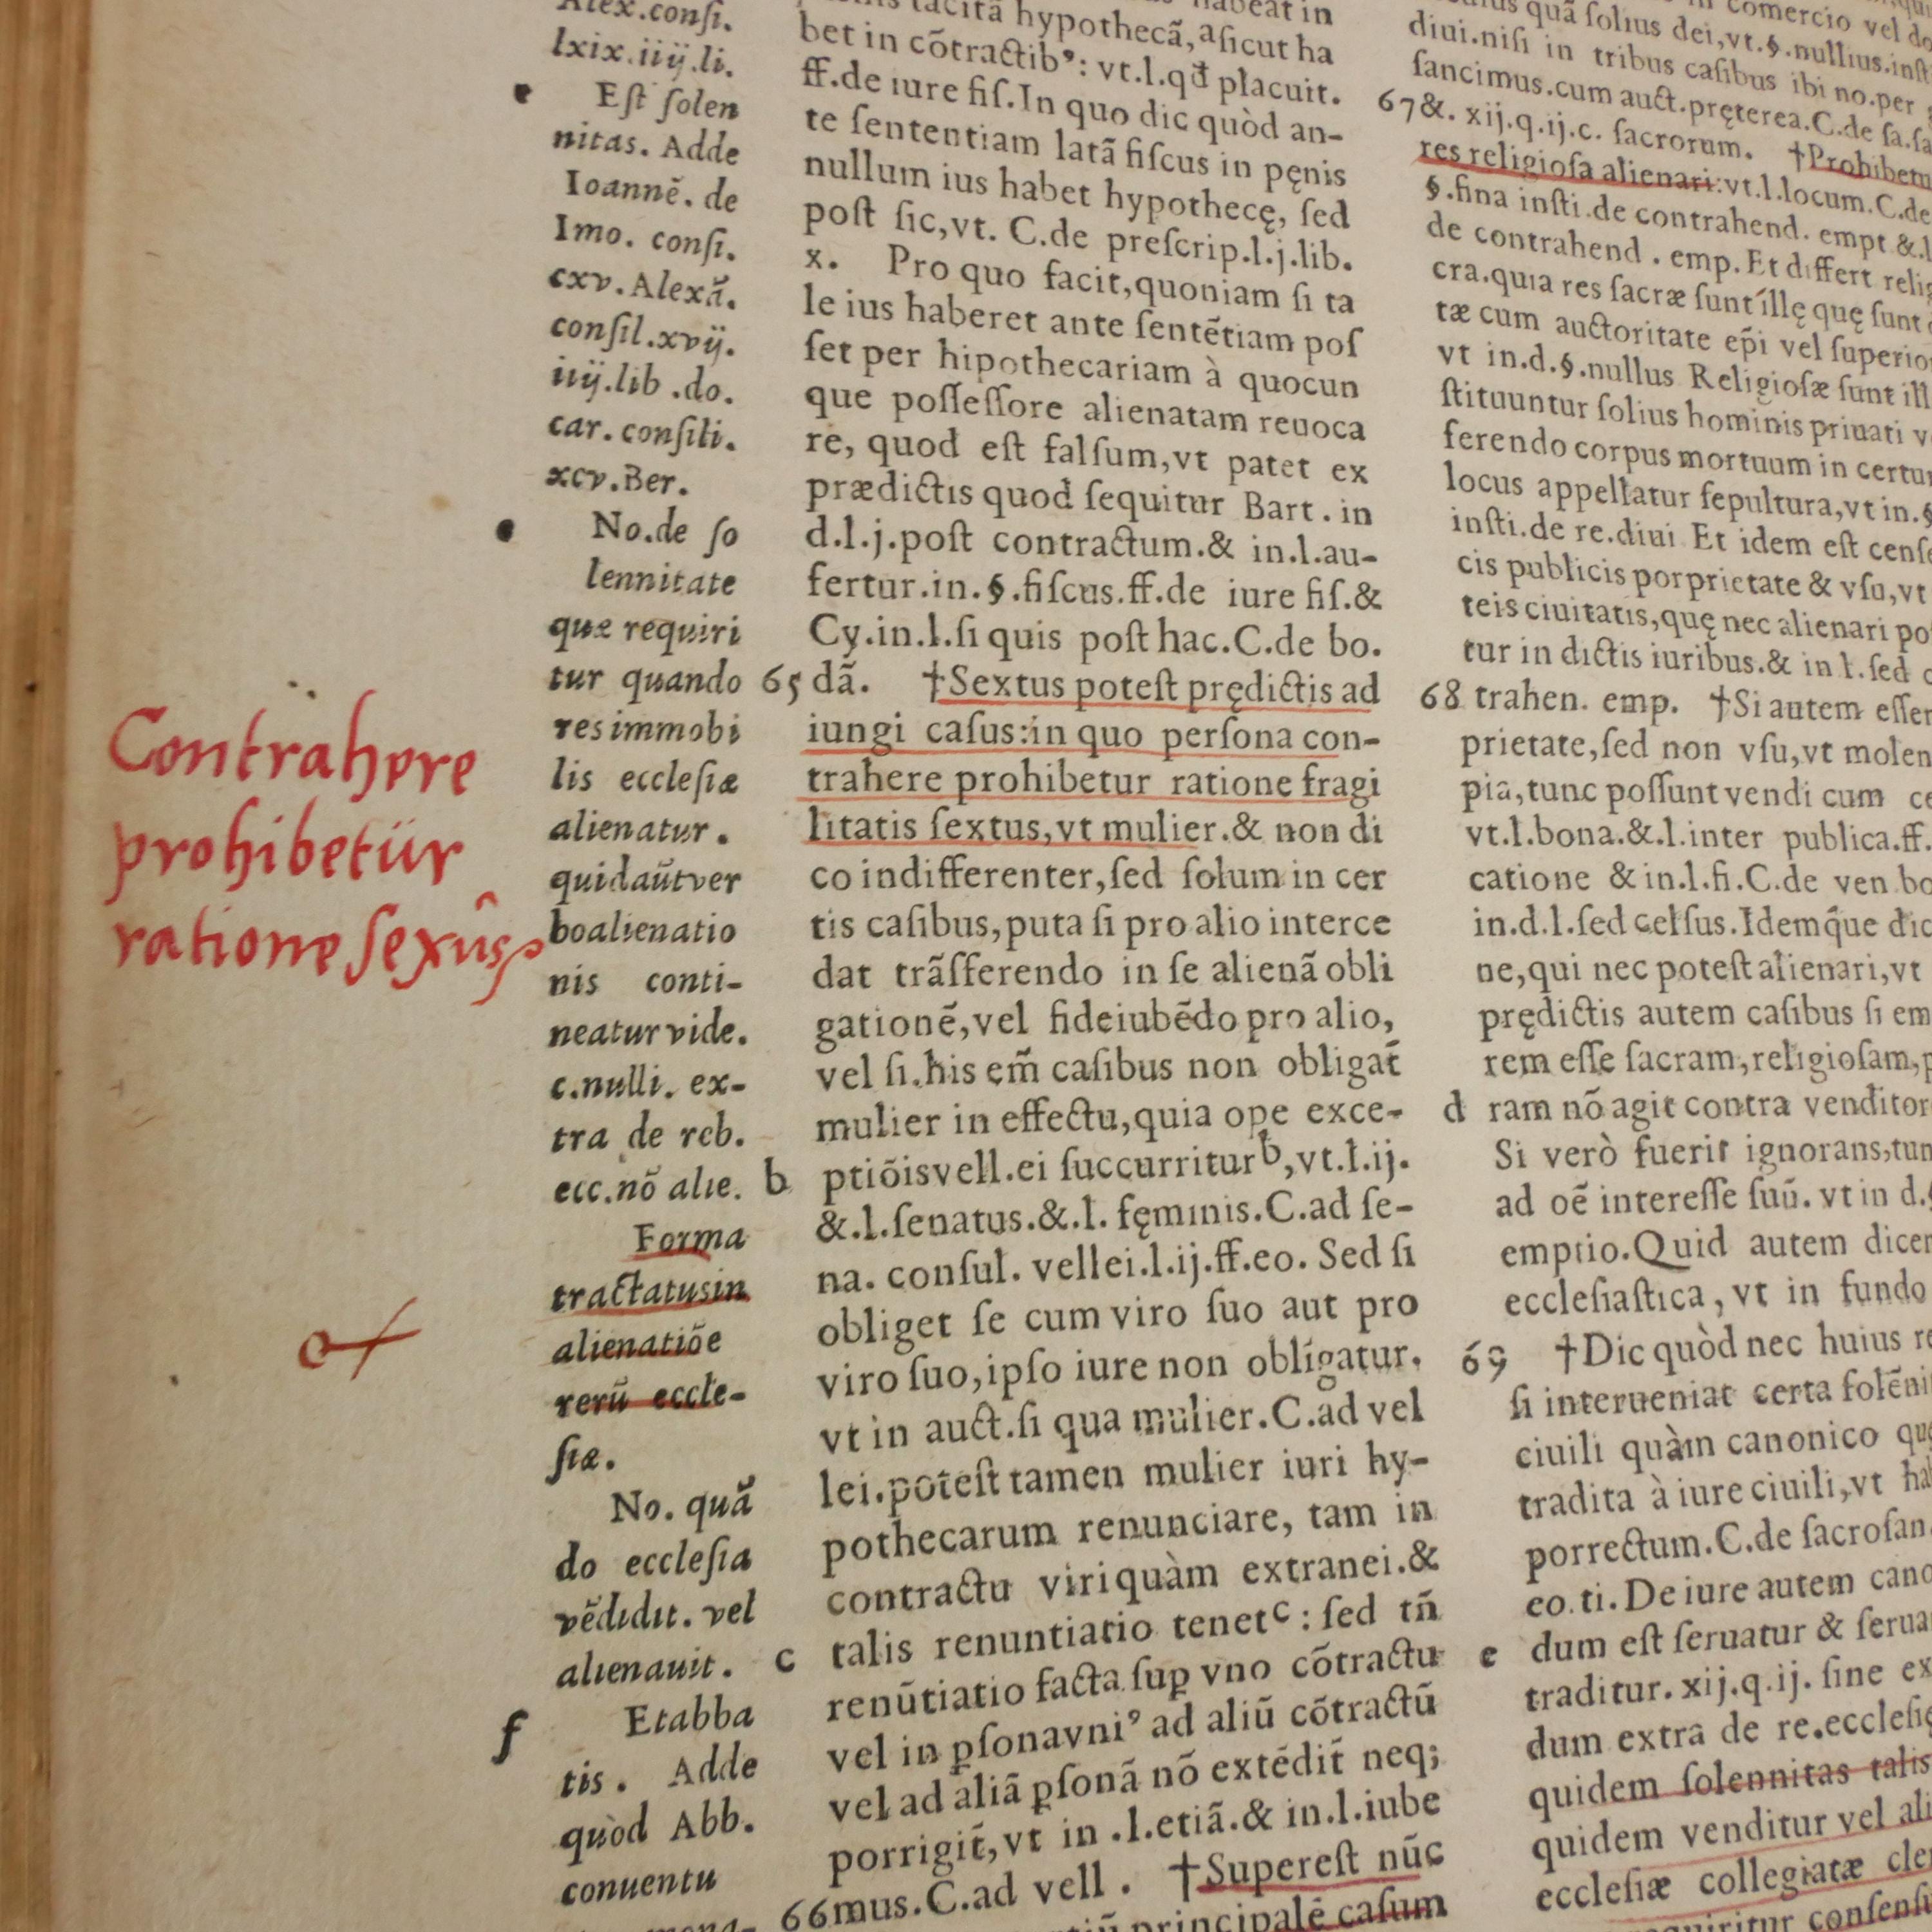 Contrahere
prohibetur
ratione sexûs
Alex.conſi.
lxix.iiij.li.
e Eſt ſolen
nitas. Adde
Ioannẽ. de
Imo. conſi.
cxv.Alexã.
conſil.xvij.
iiij.lib .do.
car. conſili.
xcv.Ber.
No.de ſo
lennitate
quæ requiri
tur quando
res immobi
lis eccleſiæ
alienatur.
quid aũt ver
bo alienatio
nis conti-
neatur vide.
c.nulli. ex-
tra de reb.
ecc.nõ alie.
Forma
tractatus in
alienatiõe
rerũ eccle-
ſiæ.
No. quã
do eccleſia
vẽdidit. vel
alienauit.
f Et abba
tis. Adde
quòd Abb.
conuentu
tacitã hypothecã, ᵃſicut ha
bet in cõtractibꝰ: vt.l.qđ placuit.
ff.de iure fiſ.In quo dic quòd an-
te ſententiam latã fiſcus in pęnis
nullum ius habet hypothecę, ſed
poſt ſic,vt. C.de preſcrip.l.j.lib.
x. Pro quo facit,quoniam ſi ta
le ius haberet ante ſentẽtiam poſ
ſet per hipothecariam à quocun
que poſſeſſore alienatam reuoca
re, quod eſt falſum,vt patet ex
prædictis quod ſequitur Bart. in
d.l.j.poſt contractum.& in.l.au-
fertur.in.§.fiſcus.ff.de iure fiſ.&
Cy.in.l.ſi quis poſt hac.C.de bo.
65 dã. †Sextus poteſt prędictis ad
iungi caſus:in quo perſona con-
trahere prohibetur ratione fragi
litatis ſextus,vt mulier.& non di
co indifferenter,ſed ſolum in cer
tis caſibus,puta ſi pro alio interce
dat trãſferendo in ſe alienã obli
gationẽ,vel fideiubẽdo pro alio,
vel ſi.his em̃ caſibus non obligat̃
mulier in effectu,quia ope exce-
b ptiõis vell.ei ſuccurriturᵇ,vt.l.ij.
&.l.ſenatus.&.l. fęminis.C.ad ſe-
na. conſul. vellei.l.ij.ff.eo. Sed ſi
obliget ſe cum viro ſuo aut pro
viro ſuo,ipſo iure non obligatur.
vt in auct.ſi qua mulier.C.ad vel
lei.poteſt tamen mulier iuri hy-
pothecarum renunciare, tam in
contractu viri quàm extranei.&
c talis renuntiatio tenetᶜ: ſed tñ
renũtiatio facta ſuꝑ vno cõtractu
vel in ꝑſona vniꝰ ad aliũ cõtractũ
vel ad aliã ꝑſonã nõ extẽdit̃ neq;
porrigit̃,vt in .l.etiã.& in.l.iube
66 mus.C.ad vell. †Supereſt nũc
principalẽ caſum
quã ſolius dei,vt.§.nullius.inſt
diui.niſi in tribus caſibus ibi no.per
ſancimus.cum auct.pręterea.C.de ſa.ſa
67 &. xij.q.ij.c. ſacrorum. †Prohibetu
res religioſa alienari:vt.l.locum.C.de
§.fina inſti.de contrahend. empt &.l
de contrahend . emp.Et differt relig
cra.quia res ſacræ ſunt illę quę ſunt
tæ cum auctoritate ep̃i vel ſuperio
vt in.d.§.nullus Religioſæ ſunt ill
ſtituuntur ſolius hominis priuati v
ferendo corpus mortuum in certu
locus appellatur ſepultura,vt in.§
inſti.de re.diui Et idem eſt cenſe
cis publicis porprietate & vſu,vt
teis ciuitatis,quę nec alienari po
tur in dictis iuribus.& in l.ſed c
68 trahen. emp. †Si autem eſſen
prietate,ſed non vſu,vt molen
pia,tunc poſſunt vendi cum ce
vt.l.bona.&.l.inter publica.ff.
catione & in.l.fi.C.de ven.bo
in.d.l.ſed celſus.Idemq̃ue dic
ne,qui nec poteſt alienari,vt
prędictis autem caſibus ſi em
rem eſſe ſacram,religioſam,p
d ram nõ agit contra venditor
Si verò fuerit ignorans,tun
ad oẽ intereſſe ſuũ. vt in d.
emptio.Quid autem dicer
eccleſiaſtica, vt in fundo
69 †Dic quòd nec huius re
ſi interueniat certa ſolẽni
ciuili quàm canonico quę
tradita à iure ciuili,vt ha
porrectum.C.de ſacroſan.
eo.ti. De iure autem cano
e dum eſt ſeruatur & ſerua
traditur. xij.q.ij. ſine ex
dum extra de re.eccleſię
quidem ſolennitas talis
quidem venditur vel ali
eccleſiæ collegiatæ cle
conſenſ